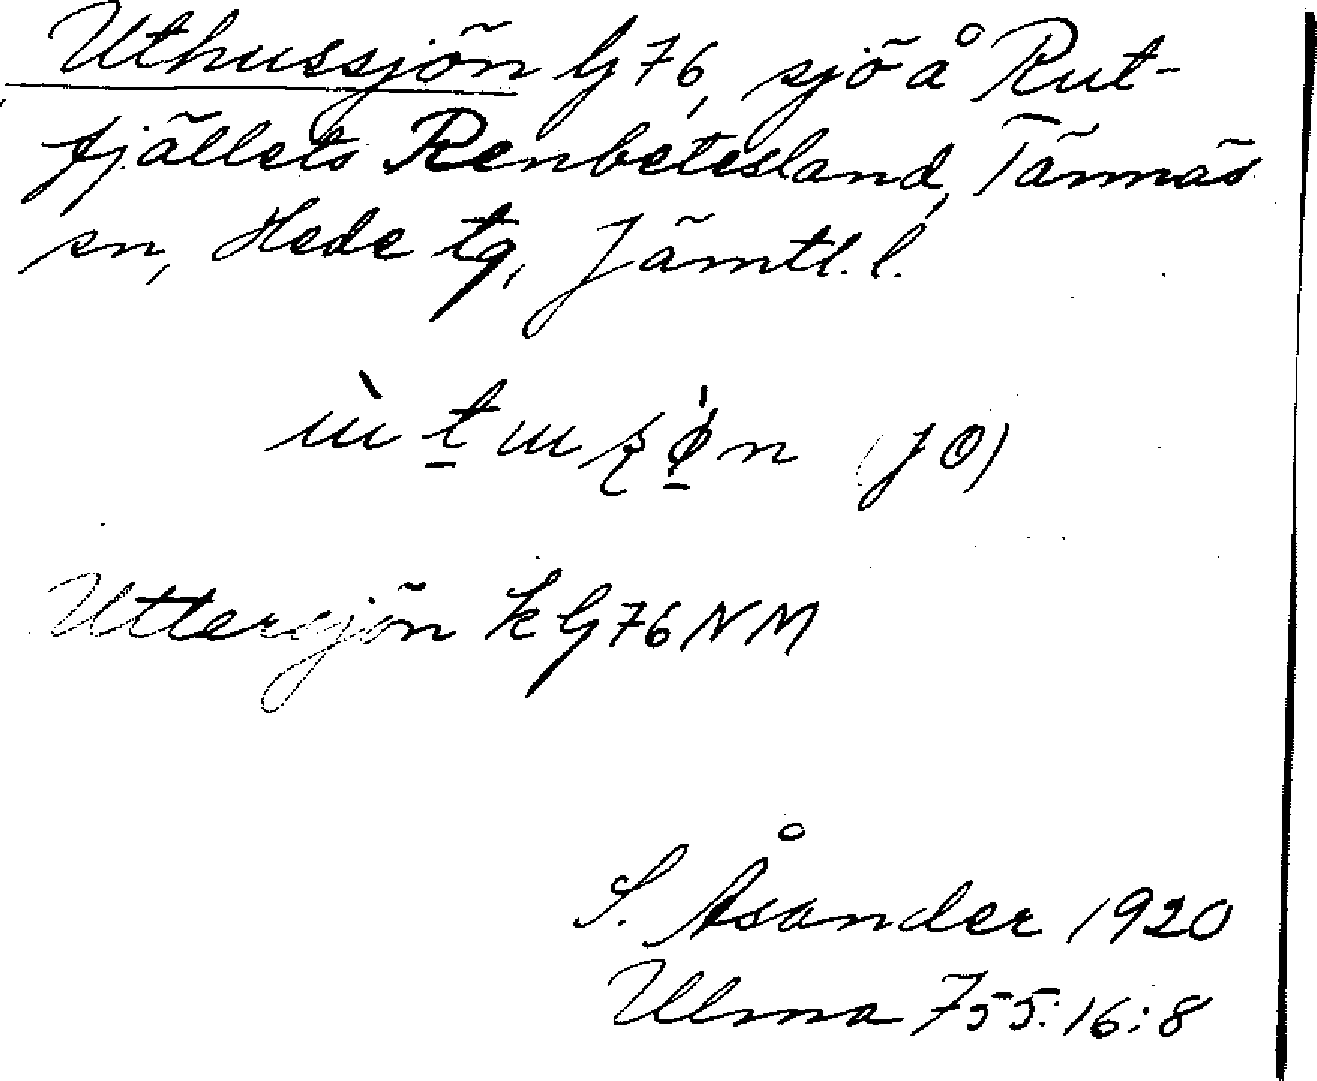 Uthussjön G 76, sjö å Rut-
fjällets Renbetesland, Tännäs
sn, Hede tg, Jämtl. l.
(JO)
Uttersjön k G 76 NM
S. Åsander 1920
Ulma 755:16:8